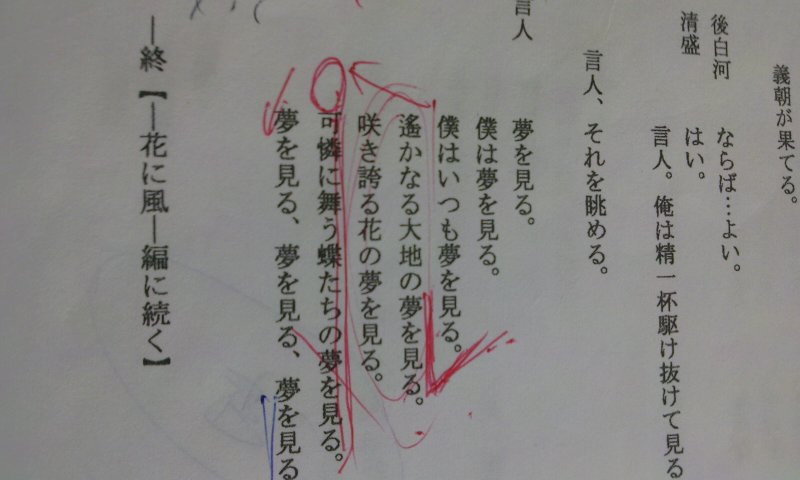 義朝が果てる。
後白河 ならば…よい。
清盛 はい。
言人。俺は精一杯駆け抜けて見る
言人、それを眺める。
言人 夢を見る。
僕は夢を見る。
僕はいつも夢を見る。
遙かなる大地の夢を見る。
咲き誇る花の夢を見る。
可憐に舞う蝶たちの夢を見る。
夢を見る、夢を見る、夢を見る
―終【―花に風―編に続く】